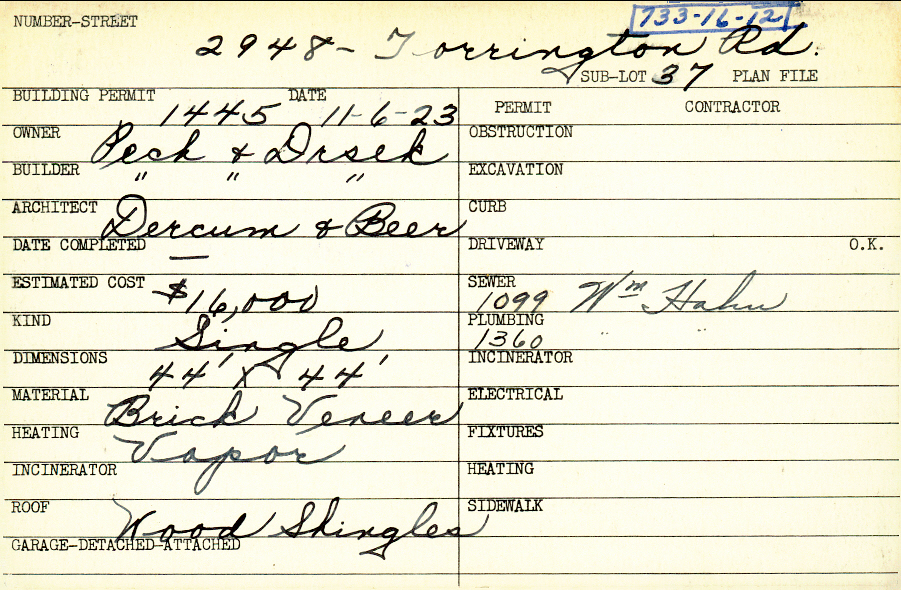 NUMBER-STREET 733-16-12
2948- Torrington Rd.
SUB-LOT 37 PLAN FILE
BUILDING PERMIT 1445 DATE 11-6-23
PERMIT CONTRACTOR
OWNER Peck & Drsek
OBSTRUCTION
BUILDER " " "
EXCAVATION
ARCHITECT Dercum & Beer
CURB
DATE COMPLETED —
DRIVEWAY O.K.
ESTIMATED COST $16,000
SEWER 1099 Wm Hahn
KIND Single
PLUMBING 1360 " "
DIMENSIONS 44' X 44'
INCINERATOR
MATERIAL Brick Veneer
ELECTRICAL
HEATING Vapor
FIXTURES
INCINERATOR
HEATING
ROOF Wood Shingles
SIDEWALK
GARAGE-DETACHED-ATTACHED